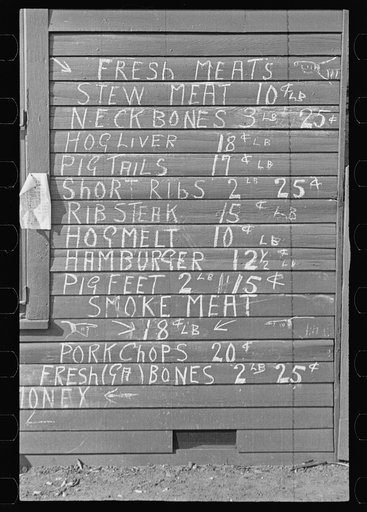 FRESH MEATS
STEW MEAT 10¢ LB
NECK BONES 3 LB 25¢
HOG LIVER 18¢ LB
PIG TAILS 17¢ LB
SHORT RIBS 2 LB 25¢
RIB STEAK 15¢ LB
HOG MELT 10¢ LB
HAMBURGER 12½¢ LB
PIG FEET 2 LB 15¢
SMOKE MEAT
18¢ LB
PORK CHOPS 20¢
FRESH (GA) BONES 2 LB 25¢
HONEY